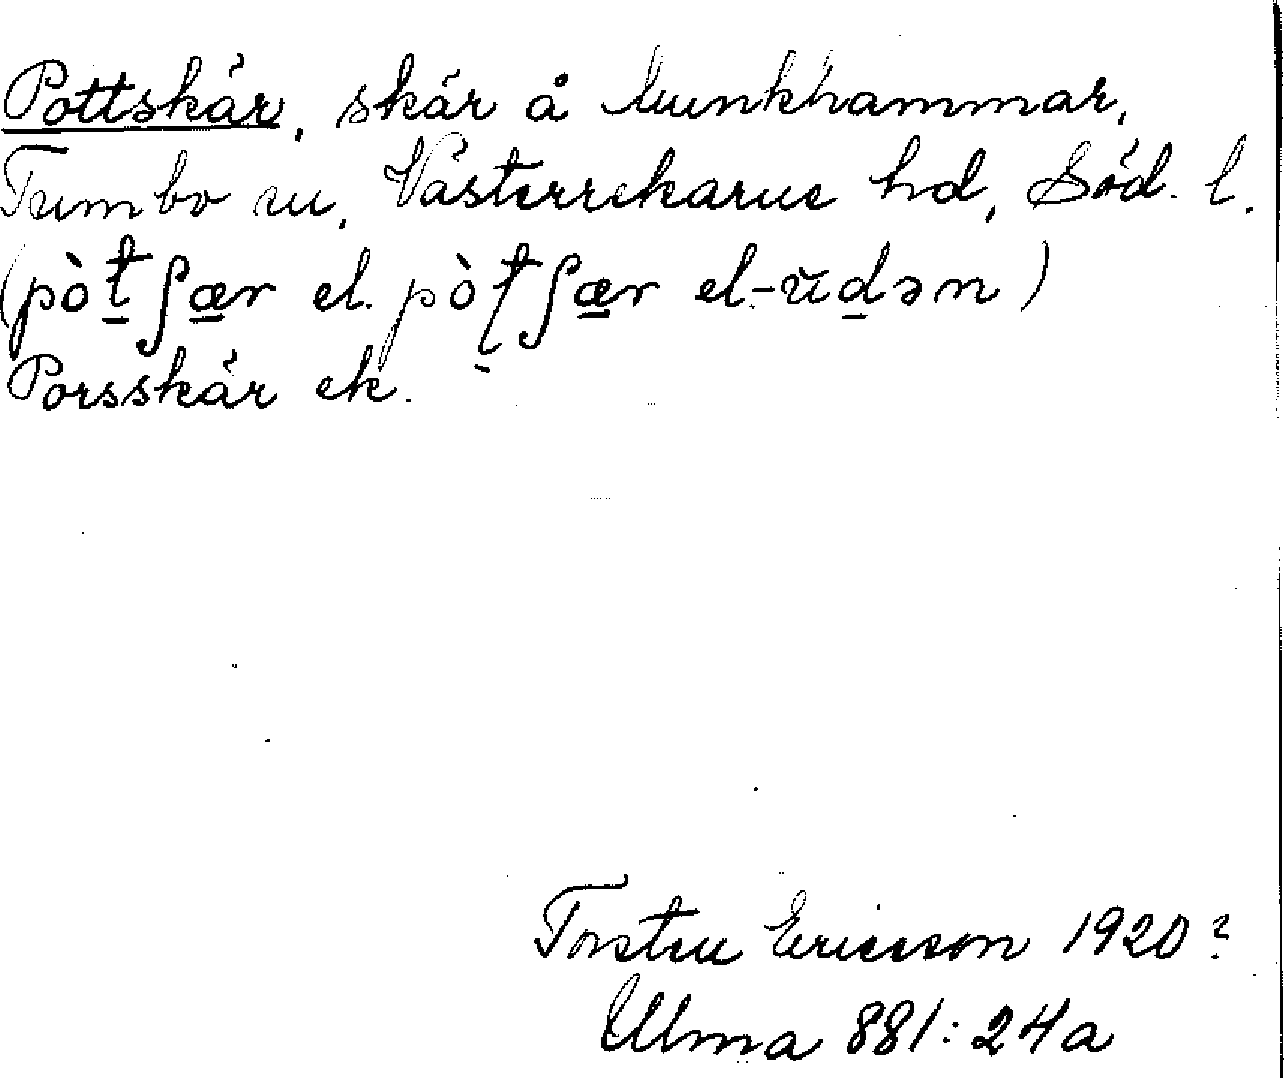 Pottskär, skär å Munkhammar,
Tumbo sn, Västerrekarne hd, Söd. l.
(pòt̠ʃæ̠r el. pòt̠ʃæ̠r el. -ŭd̠ən)
Porsskär ek.
Torsten Ericsson 1920?
Ulma 881:24a